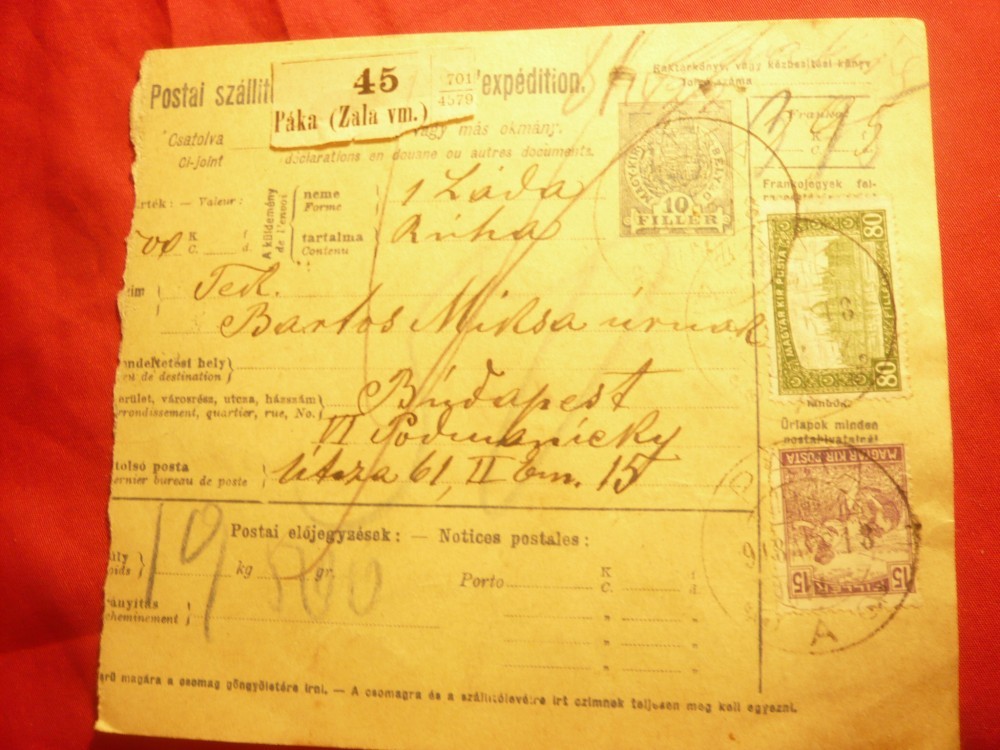 Postai szállít
expédition.
45
701
4579
Páka (Zala vm.)
Raktárkönyv, vagy kézbesitési könyv
Csatolva
vagy más okmány.
Ci-joint
déclarations en douane ou autres documents.
MAGY. KIR.
10
FILLÉR
Frankojegyek fel-
Valeur:
A küldemény
de l'envoi
neme
Forme
1 Láda
tartalma
Contenu
Ruha
K f
C. d.
Tek.
Bartos Miksa úrnak
80
MAGYAR KIR. POSTA
FILLÉR
80
ndeltetési hely)
eu de destination)
Budapest
erület, városrész, utcza, házszám)
rrondissement, quartier, rue, No.)
VI Podmaniczky
Űrlapok minden
postahivatalnál
tolsó posta
ernier bureau de poste
Utza 61, II Em. 15
MAGYAR KIR. POSTA
15
FILLÉR
15
Postai előjegyzések: — Notices postales:
19
kg
gr.
Porto
K f
C. d.
rányitás
cheminement
A
magára a csomag göngyöletére irni. — A csomagra és a szállitólevélre irt czimnek teljesen meg kell egyezni.